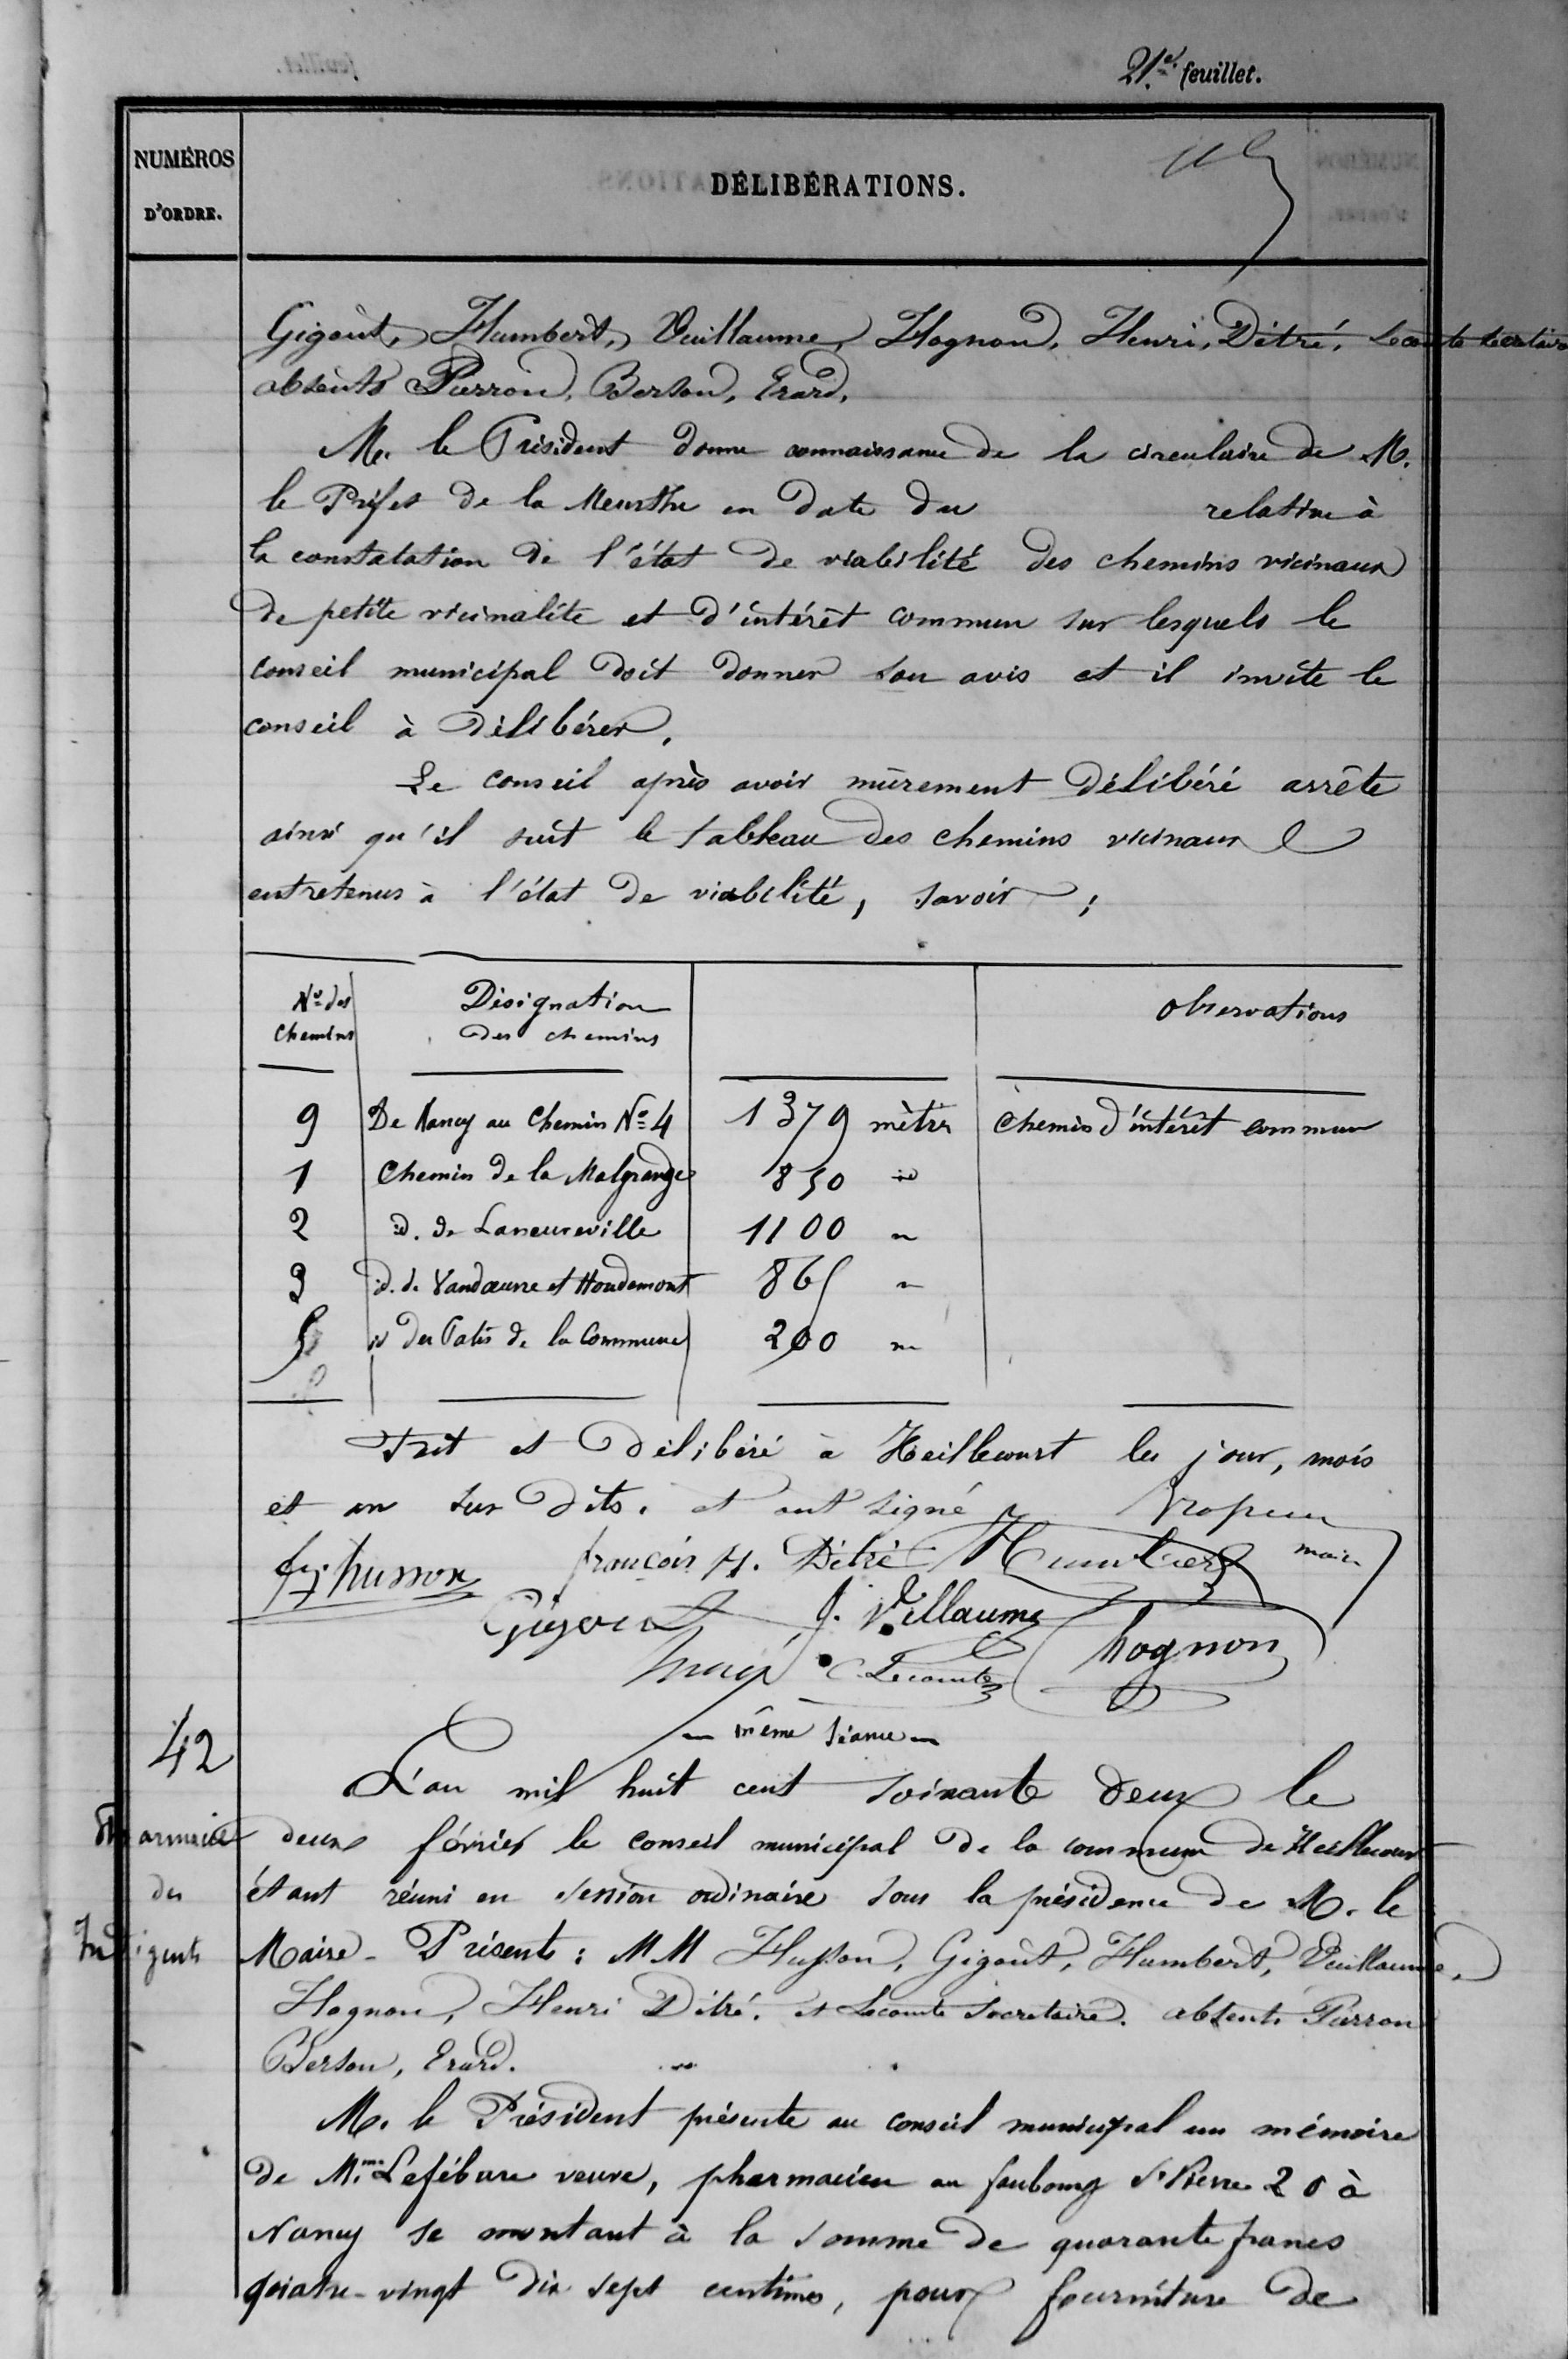 21e feuillet.
NUMÉROS
D'ORDRE.
DÉLIBÉRATIONS.
Gigout, Humbert, Vuillaume, Hognon, Henri, Ditré, Lecomte secrétaire
absents Pierron, Berson, Erard,
M. le Président donne connaissance de la circulaire de M.
le Préfet de la Meurthe en date du relative à
la constatation de l'état de viabilité des chemins vicinaux
de petite vicinalité et d'intérêt commun sur lesquels le
conseil municipal doit donner son avis et il invite le
conseil à délibérer.
Le conseil après avoir mûrement délibéré arrête
ainsi qu'il suit le tableau des chemins vicinaux
entretenus à l'état de viabilité, savoir ;
Nos des Désignation observations
chemins des chemins
9 De Nancy au chemin No 4 1379 mètres chemin d'intérêt commun
1 Chemin de la Malgrange 850 id
2 id. de Laneuveville 1100 "
3 id. de Vandœuvre et Houdemont 865 "
5 id des Patis de la Commune 200 "
Fait et délibéré à Heillecourt les jour, mois
et an sus dits. et ont signé
fr husson françois H. Ditré Humbert maire
Gigout J. Villaume
C. Lecomte hognon
même séance
42
L'an mil huit cent soixante deux le
Pharmacie deux février le conseil municipal de la commune de Heillecourt
des étant réuni en session ordinaire sous la présidence de M. le
Indigents Maire - Présents : MM Husson, Gigout, Humbert, Vuillaume,
Hognon, Henri Ditré, et Lecomte secrétaire. absents Pierron
Berson, Erard.
M. le Président présente au conseil municipal un mémoire
de Mme Lefébure veuve, pharmacien au faubourg St Pierre 20 à
Nancy se montant à la somme de quarante francs
quatre-vingt dix sept centimes, pour fourniture de